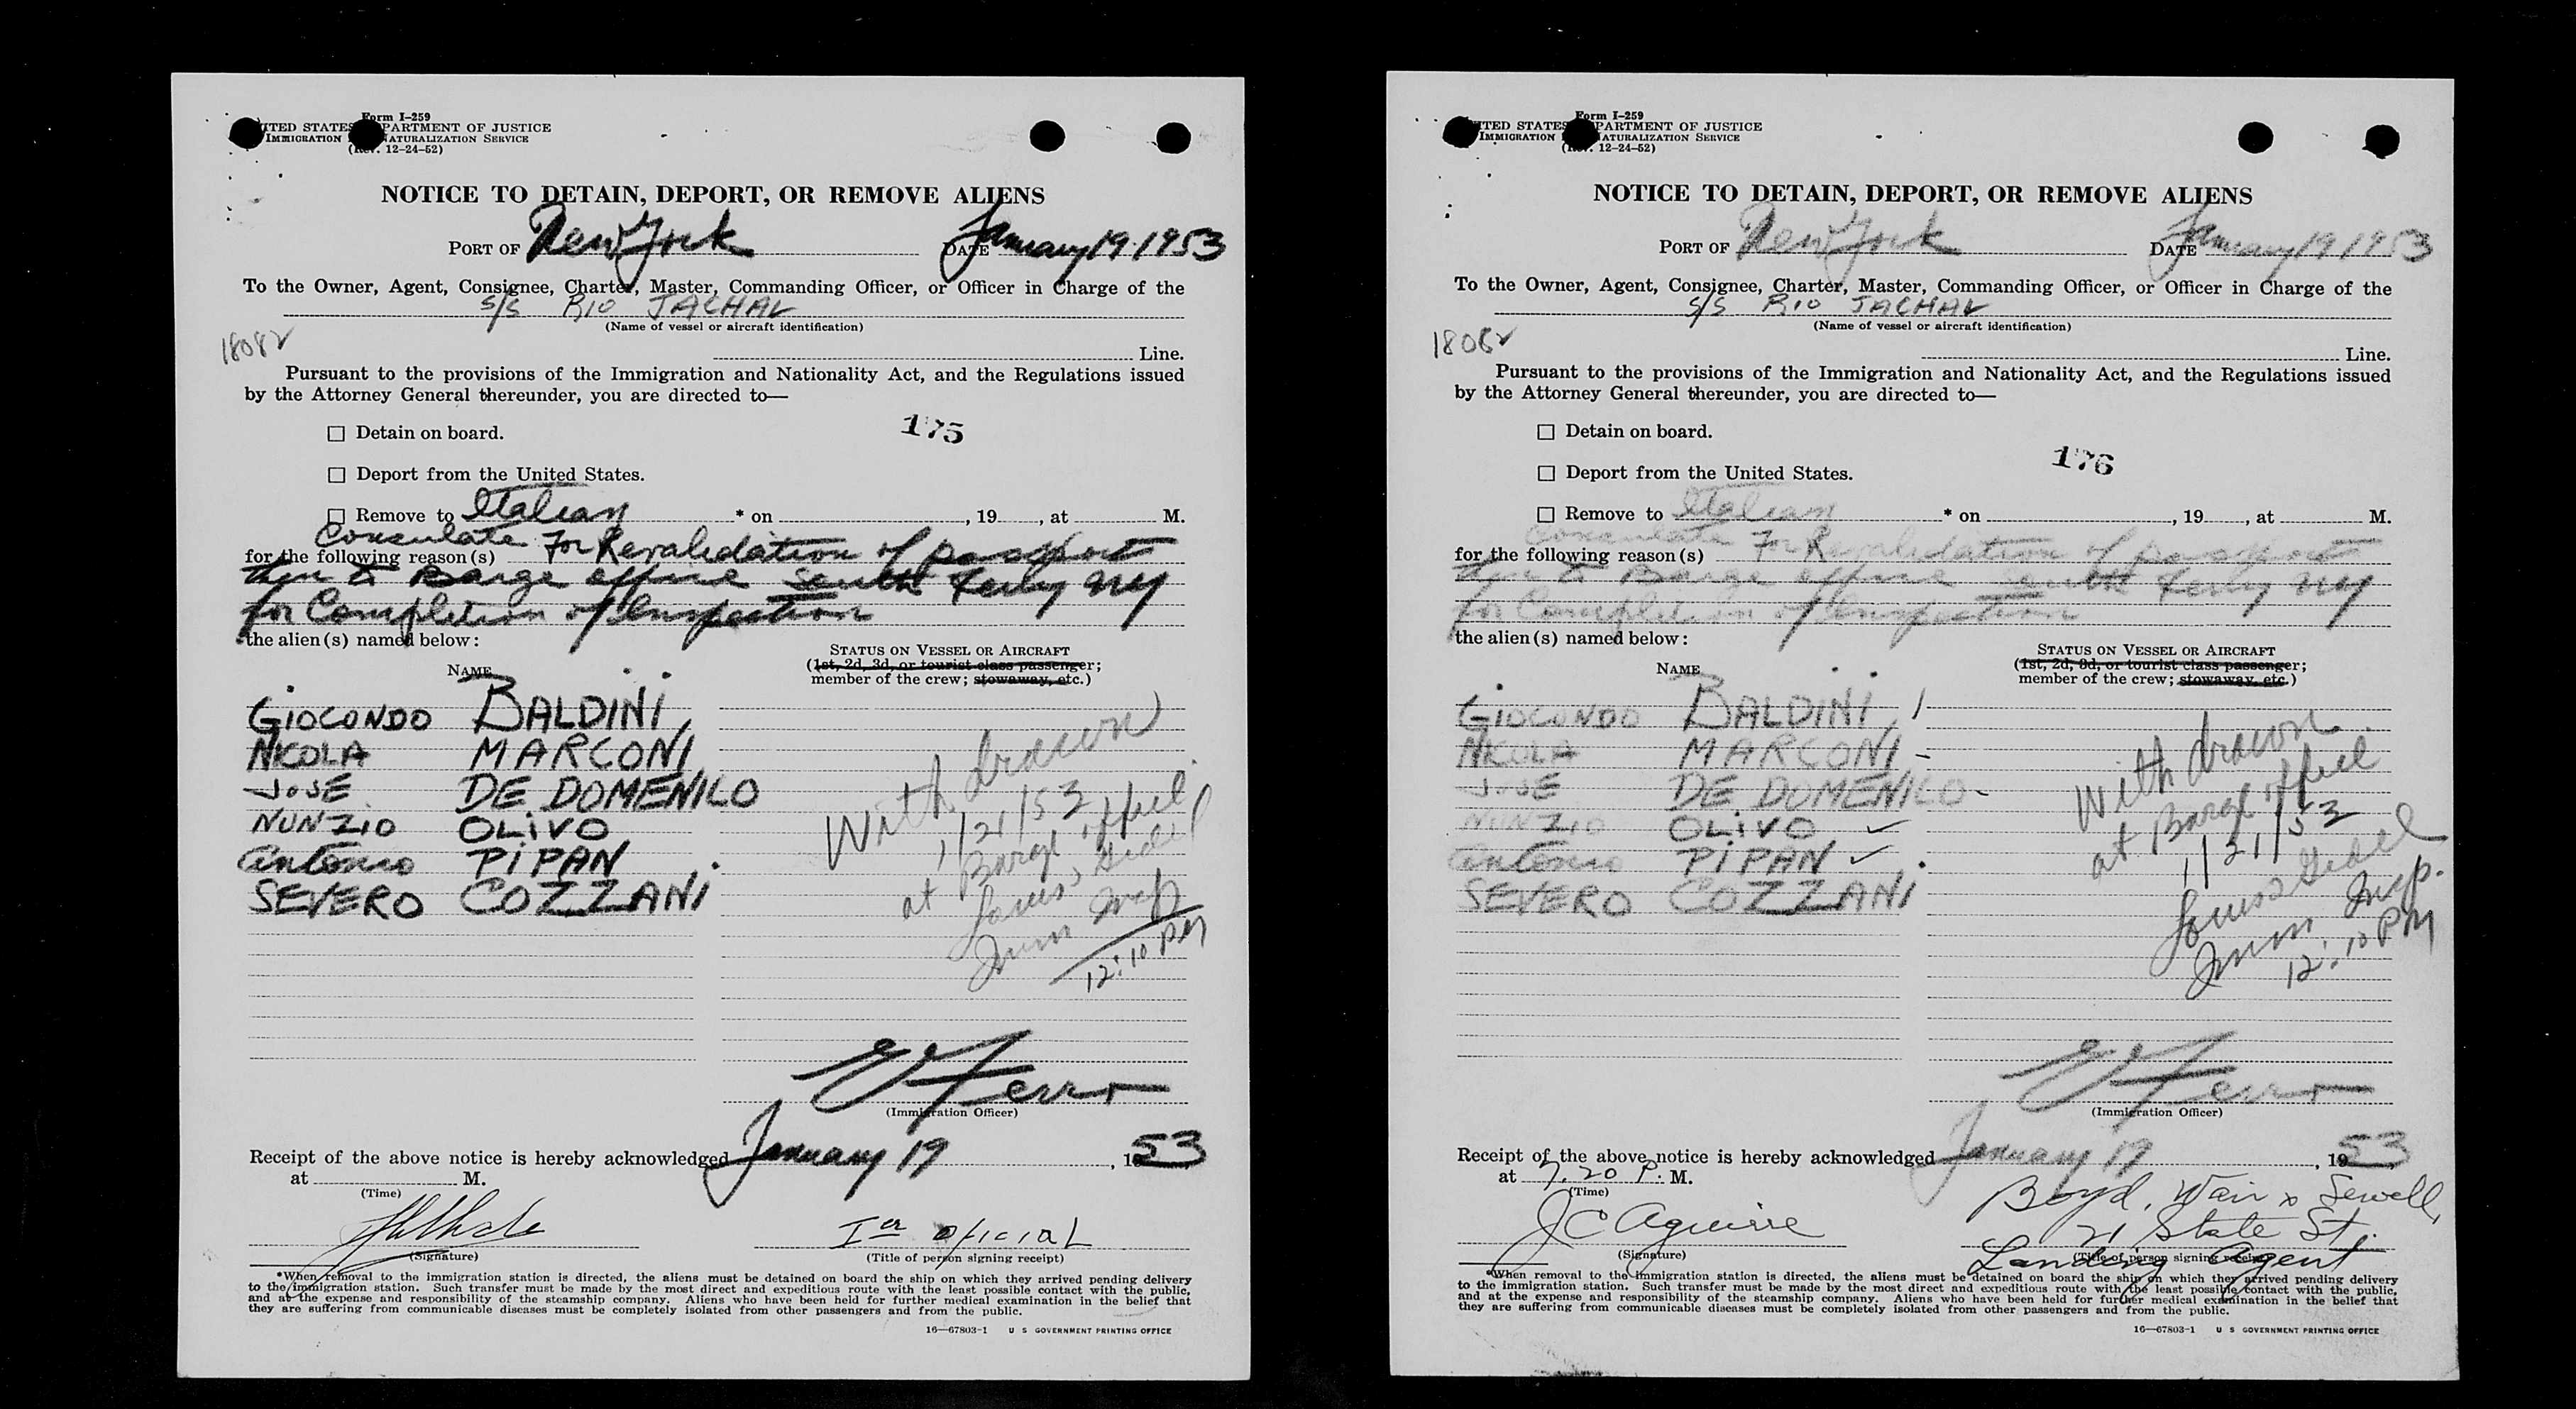 Form I-259
UNITED STATES DEPARTMENT OF JUSTICE
IMMIGRATION NATURALIZATION SERVICE
(Rev. 12-24-52)
NOTICE TO DETAIN, DEPORT, OR REMOVE ALIENS
PORT OF New York DATE January 19 1953
To the Owner, Agent, Consignee, Charter, Master, Commanding Officer, or Officer in Charge of the
S/S RIO JACHAL
(Name of vessel or aircraft identification)
18082
Line.
Pursuant to the provisions of the Immigration and Nationality Act, and the Regulations issued
by the Attorney General thereunder, you are directed to—
175
☐ Detain on board.
☐ Deport from the United States.
☐ Remove to Italian * on , 19 , at M.
Consulate For Revalidation of passport
for the following reason(s)
then to Barge office South Ferry NY
for Completion of Inspection
the alien(s) named below:
NAME
STATUS ON VESSEL OR AIRCRAFT
(1st, 2d, 3d, or tourist class passenger;
member of the crew; stowaway, etc.)
GIOCONDO BALDINI
NICOLA MARCONI
JOSE DE DOMENICO
NUNZIO OLIVO
Antonio PIPAN
SEVERO COZZANI
With drawn
1/21/53
at Barge office
Louis
Imm Insp
12:10 PM
E J Ferro
(Immigration Officer)
Receipt of the above notice is hereby acknowledged January 19, 1953
at M.
(Time)
Ier oficial
(Signature)
(Title of person signing receipt)
*When removal to the immigration station is directed, the aliens must be detained on board the ship on which they arrived pending delivery
to the immigration station. Such transfer must be made by the most direct and expeditious route with the least possible contact with the public,
and at the expense and responsibility of the steamship company. Aliens who have been held for further medical examination in the belief that
they are suffering from communicable diseases must be completely isolated from other passengers and from the public.
16—67803-1 U S GOVERNMENT PRINTING OFFICE
Form I-259
UNITED STATES DEPARTMENT OF JUSTICE
IMMIGRATION NATURALIZATION SERVICE
(Rev. 12-24-52)
NOTICE TO DETAIN, DEPORT, OR REMOVE ALIENS
PORT OF New York DATE January 19 1953
To the Owner, Agent, Consignee, Charter, Master, Commanding Officer, or Officer in Charge of the
S/S RIO JACHAL
(Name of vessel or aircraft identification)
18082
Line.
Pursuant to the provisions of the Immigration and Nationality Act, and the Regulations issued
by the Attorney General thereunder, you are directed to—
☐ Detain on board.
176
☐ Deport from the United States.
☐ Remove to Italian * on , 19 , at M.
Consulate For Revalidation of passport
for the following reason(s)
then to Barge office South Ferry NY
for Completion of Inspection
the alien(s) named below:
NAME
STATUS ON VESSEL OR AIRCRAFT
(1st, 2d, 3d, or tourist class passenger;
member of the crew; stowaway, etc.)
GIOCONDO BALDINI /
NICOLA MARCONI -
JOSE DE DOMENICO -
NUNZIO OLIVO ✓
Antonio PIPAN ✓
SEVERO COZZANI
With drawn
at Barge office
1/21/53
Louis
Imm Insp.
12:10 PM
E J Ferro
(Immigration Officer)
Receipt of the above notice is hereby acknowledged January 19, 1953
at 7.20 P. M.
(Time)
Boyd, Weir & Sewell,
J C Aguirre
21 State St.
(Signature)
(Title of person signing receipt)
Landing Agent
*When removal to the immigration station is directed, the aliens must be detained on board the ship on which they arrived pending delivery
to the immigration station. Such transfer must be made by the most direct and expeditious route with the least possible contact with the public,
and at the expense and responsibility of the steamship company. Aliens who have been held for further medical examination in the belief that
they are suffering from communicable diseases must be completely isolated from other passengers and from the public.
16—67803-1 U S GOVERNMENT PRINTING OFFICE